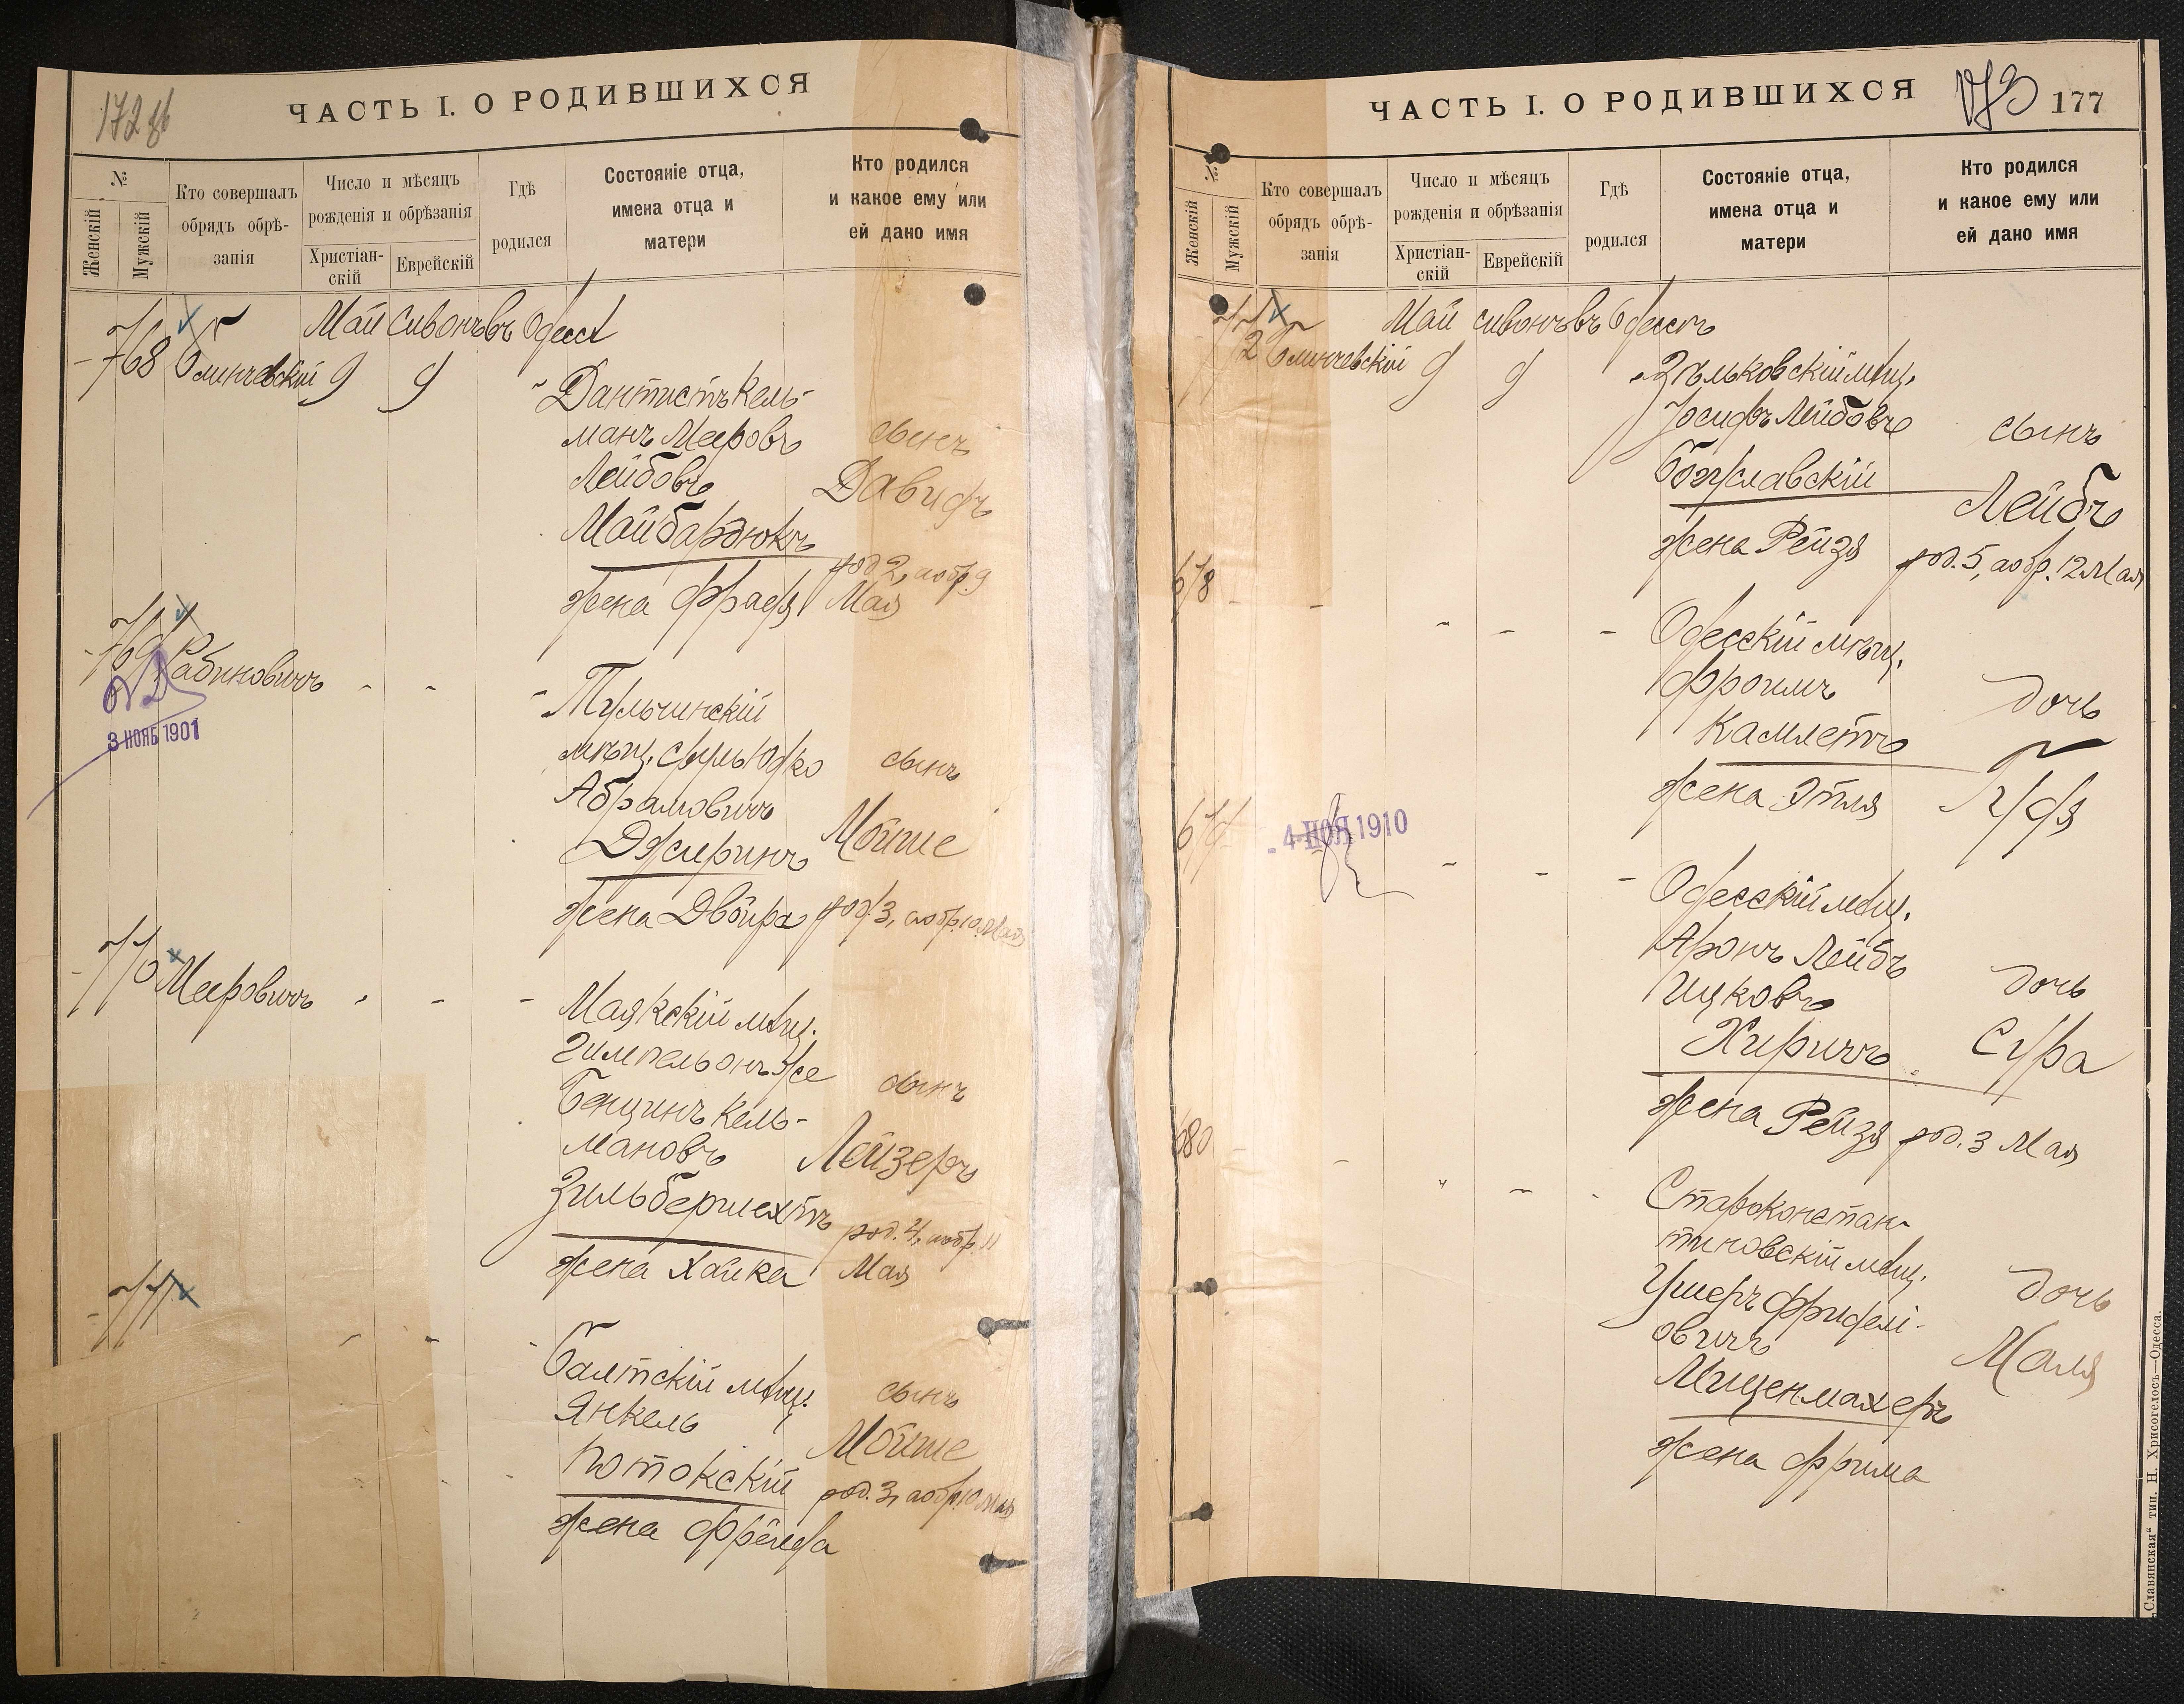 172 об
ЧАСТЬ I. О РОДИВШИХСЯ
№
Женскій
Мужскій
Кто совершалъ
обрядъ обрѣ-
занія
Число и мѣсяцъ
рожденія и обрѣзанія
Христіан-
скій
Еврейскій
Гдѣ
родился
Состояніе отца,
имена отца и
матери
Кто родился
и какое ему или
ей дано имя
Май Сивонъ въ Одессѣ
768 9 9
Дантистъ Кель-
манъ Мееровъ сынъ
Лейбовъ Давидъ
Майбардюкъ
род 2, а обр. 9
жена Фрадя Мая
769 Рабиновичъ - - -
3 НОЯБ 1901
Тульчинскій
мѣщ. Сруль Юдко сынъ
Абрамовичъ
Джиринъ Мойше
жена Двойра род 3, а обр. 10 Мая
770 Мееровичъ - - -
Маякскій мѣщ.
Гимпель онъ же
Бенцинъ Кель- сынъ
мановъ Лейзеръ
Зильберлехтъ
род. 4, а обр. 11
жена Хайка Мая
771 - - -
Балтскій мѣщ. сынъ
Янкель Мойше
Потокскій род. 3, а обр. 10 мая
жена Фрейда
ЧАСТЬ I. О РОДИВШИХСЯ 173 177
№
Женскій
Мужскій
Кто совершалъ
обрядъ обрѣ-
занія
Число и мѣсяцъ
рожденія и обрѣзанія
Христіан-
скій
Еврейскій
Гдѣ
родился
Состояніе отца,
имена отца и
матери
Кто родился
и какое ему или
ей дано имя
Май Сивонъ въ Одессѣ
772 9 9
Зѣньковскій мѣщ.
Іосифъ Лейбовъ сынъ
Богуславскій Лейбъ
жена Рейзя род. 5, а обр. 12 Мая
678 - - - - -
Одесскій мѣщ.
Фроимъ дочь
Камлетъ
жена Этля Гудя
679 - - - -
4 НОЯ 1910
Одесскій мѣщ.
Аронъ Лейбъ дочь
Ицковъ
Хиричъ Сура
жена Рейзя род. 3 Мая
680 - - - - -
Староконстан-
тиновскій мѣщ.
Ушеръ Фриделі- дочь
овичъ Маля
Миценмахеръ
жена Фрима
„Славянская“ тип. Н. Хрисогелосъ—Одесса.